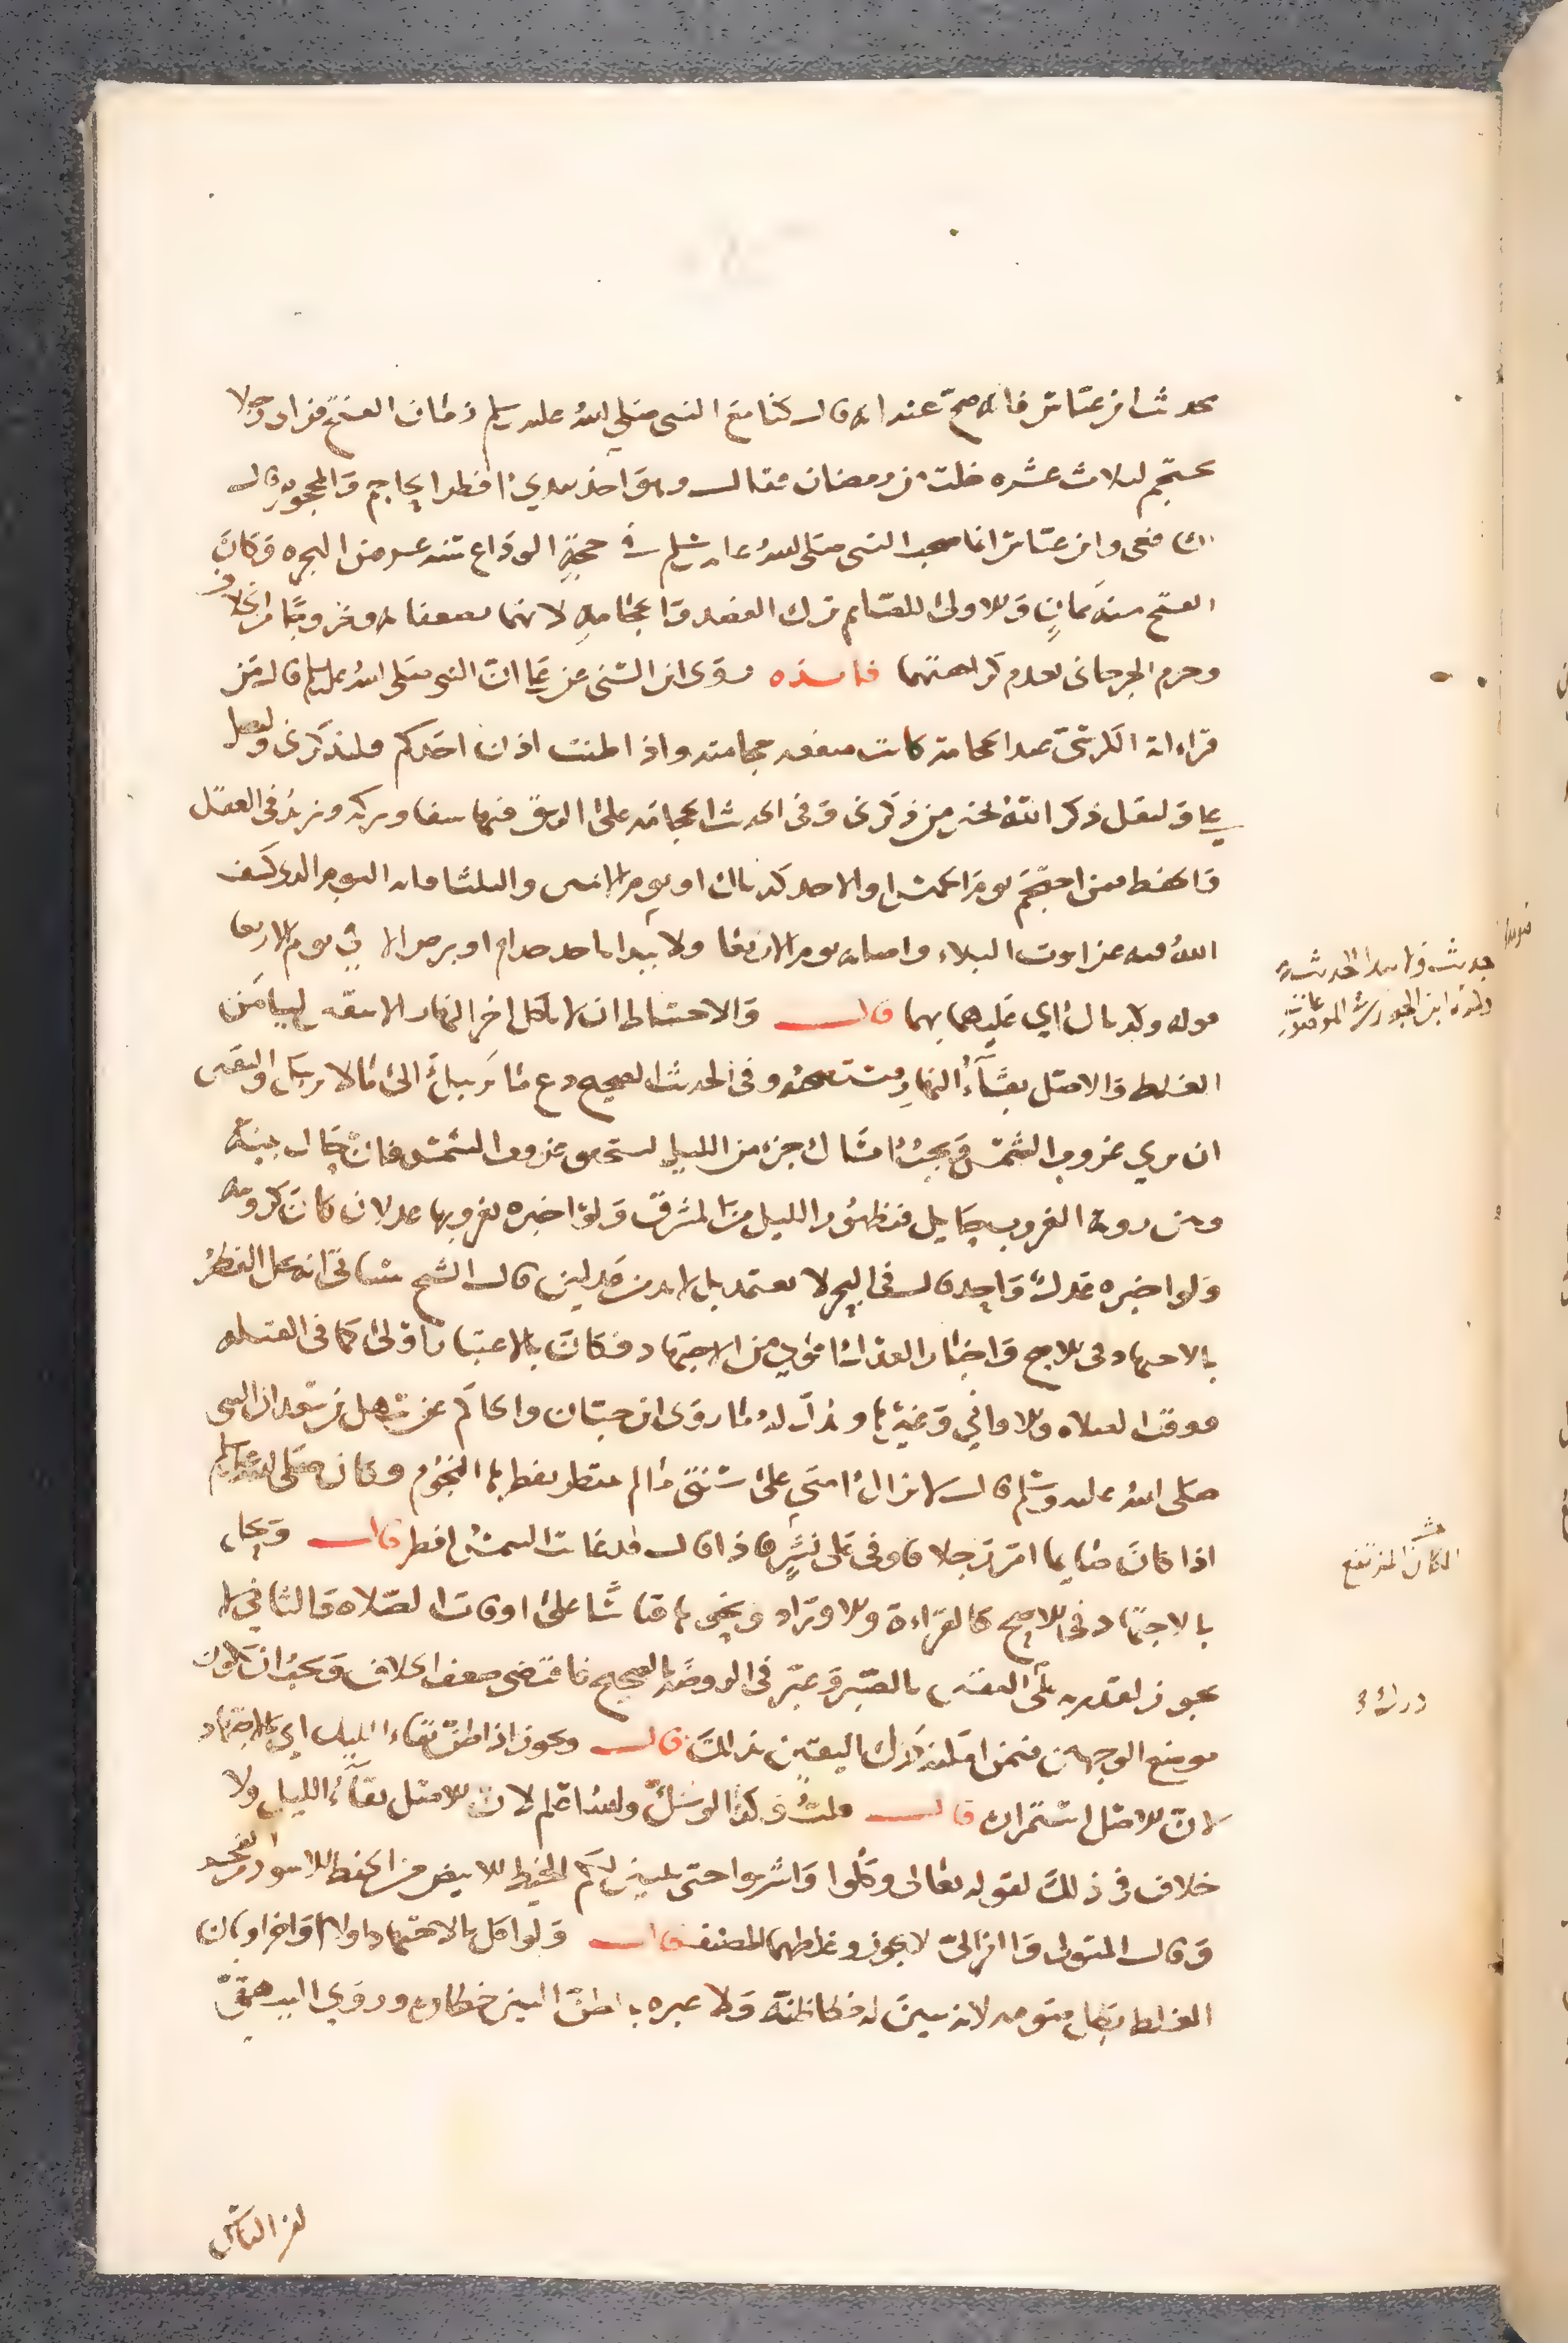 بحديث ابن عباس فانه صح عنه انه قال كنا مع النبي صلى الله عليه وسلم زمان الفتح فراى رجلا
يحتجم لثلاث عشره خلت من رمضان فقال وهو اخذ بيدي افطر الحاجم والمحجوم قال
الشافعى وابن عباس انما صحب النبي صلى الله عليه وسلم في حجة الوداع سنه عشر من الهجره وكان
الفتح سنه ثمان والاولى للصايم ترك الفصد والحجامه لانهما يضعفانه وخروجا من الخلاف
وجزم الجرجانى بعدم كراهتهما فايده روى ابن السنى عن على ان النبي صلى الله عليه وسلم قال من
قرا اية الكرسي عند الحجامة كانت منفعه حجامته واذا طنت اذن احدكم فليذكرنى وليصل
علي وليقل ذكر الله بخير من ذكرنى وفى الحديث الحجامه على الريق فيها شفا وبركه وتزيد فى العقل
والحفظ فمن احتجم يوم الخميس او الاحد كذباك او يوم الاثنين والثلثا فانه اليوم الذى كشف
الله فيه عن ايوب البلاء واصابه يوم الاربعا ولا يبدا باحد جذام او برص الا في يوم الاربعا
قوله وكذباك اي عليهما بهما قال والاحتياط ان لا ياكل اخر النهار الا بيقين ليامن
الغلط والاصل بقاء النهار وفى الحديث الصحيح دع ما يريبك الى ما لا يريبك واليقين
ان يرى غروب الشمس ويجب امساك جزء من الليل ليتحقق غروب الشمس فان حال بينه
وبين روية الغروب حايل فبظهور الليل من المشرق ولو اخبره بغروبها عدلان كان كرويته
ولو اخبره عدل واحد قال فى البحر لا يعتمد بل لا بد من عدلين قال الشيخ سياتى انه يحل الفطر
بالاجتهاد فى الاصح واخبار العدل اقوى من الاجتهاد فكان بالاعتبار اولى كما فى القبله
ووقت الصلاه والاوانى وغيرها ويدل له ما روى ابن حبان والحاكم عن سهل بن سعد ان النبي
صلى الله عليه وسلم قال لا تزال امتي على سنتي ما لم تنتظر بفطرها النجوم وكان صلى الله عليه وسلم
اذا كان صايما امر رجلا فاوفى على نشز فاذا قال قد غابت الشمس افطر قال ويحل
بالاجتهاد فى الاصح كالقراءة والاوراد ونحوها قياسا على اوقات الصلاه والثاني لا
يجوز لقدرته على اليقين بالصبر وعبر فى الروضه بالصحيح فاقتضى ضعف الخلاف ويجب ان يكون
موضع الوجهين فيمن امكنه درك اليقين بذلك قال ويجوز اذا ظن بقاء الليل اي بالاجتهاد
لان الاصل استمراره قال قلت وكذا لو شك والله اعلم لان الاصل بقاء الليل ولا
خلاف فى ذلك لقوله تعالى وكلوا واشربوا حتى يتبين لكم الخيط الابيض من الخيط الاسود من الفجر
وقال المتولى والغزالي لا يجوز وغلطهما المصنف قال ولو اكل بالاجتهاد اولا او اخرا وبان
الغلط بطل صومه لانه تبين له خطا ظنه ولا عبره بالظن البين خطاوه وروي البيهقي
لغز الناس
حديث
ابن الجوزى الموضوعات
المكان المرتفع
درك